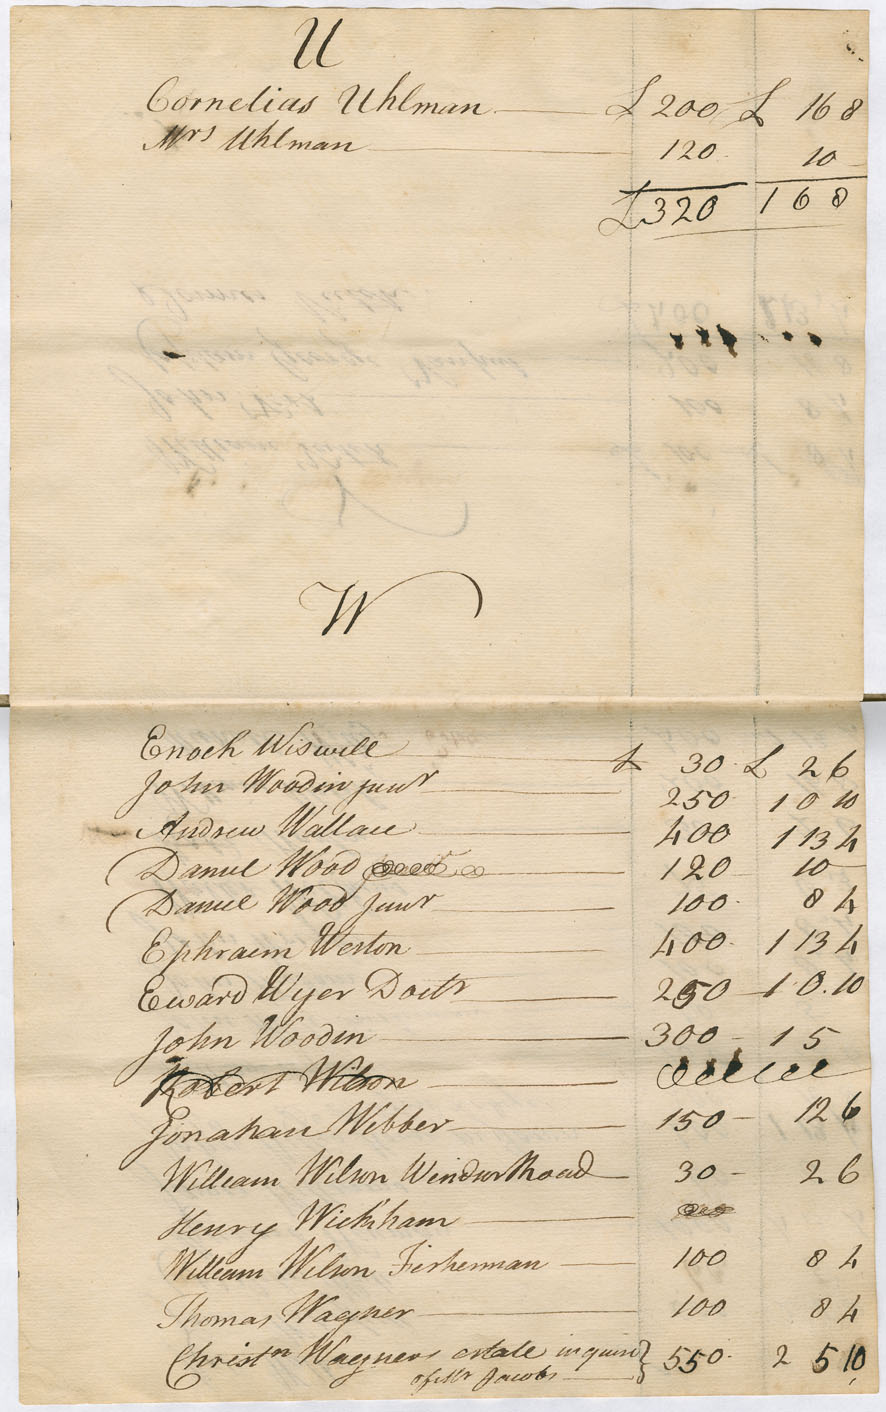 U
Cornelius Uhlman £ 200 £ 16 8
Mrs Uhlman 120 10
£ 320 1 6 8
W
Enoch Wiswill £ 30 £ 2 6
John Woodin junr 250 1 0 10
Andrew Wallace 400 1 13 4
Daniel Wood 120 10
Daniel Wood junr 100 8 4
Ephraim Weston 400 1 13 4
Eward Wyer Doctr 250 1 0 10
John Woodin 300 1 5
Robert Wilson
Jonahan Webber 150 12 6
William Wilson Windsor Road 30 2 6
Henry Wickham
William Wilson Fisherman 100 8 4
Thomas Wagner 100 8 4
Christn Wagners estate inquire } 550 2 5 10
of Mr Jacobs